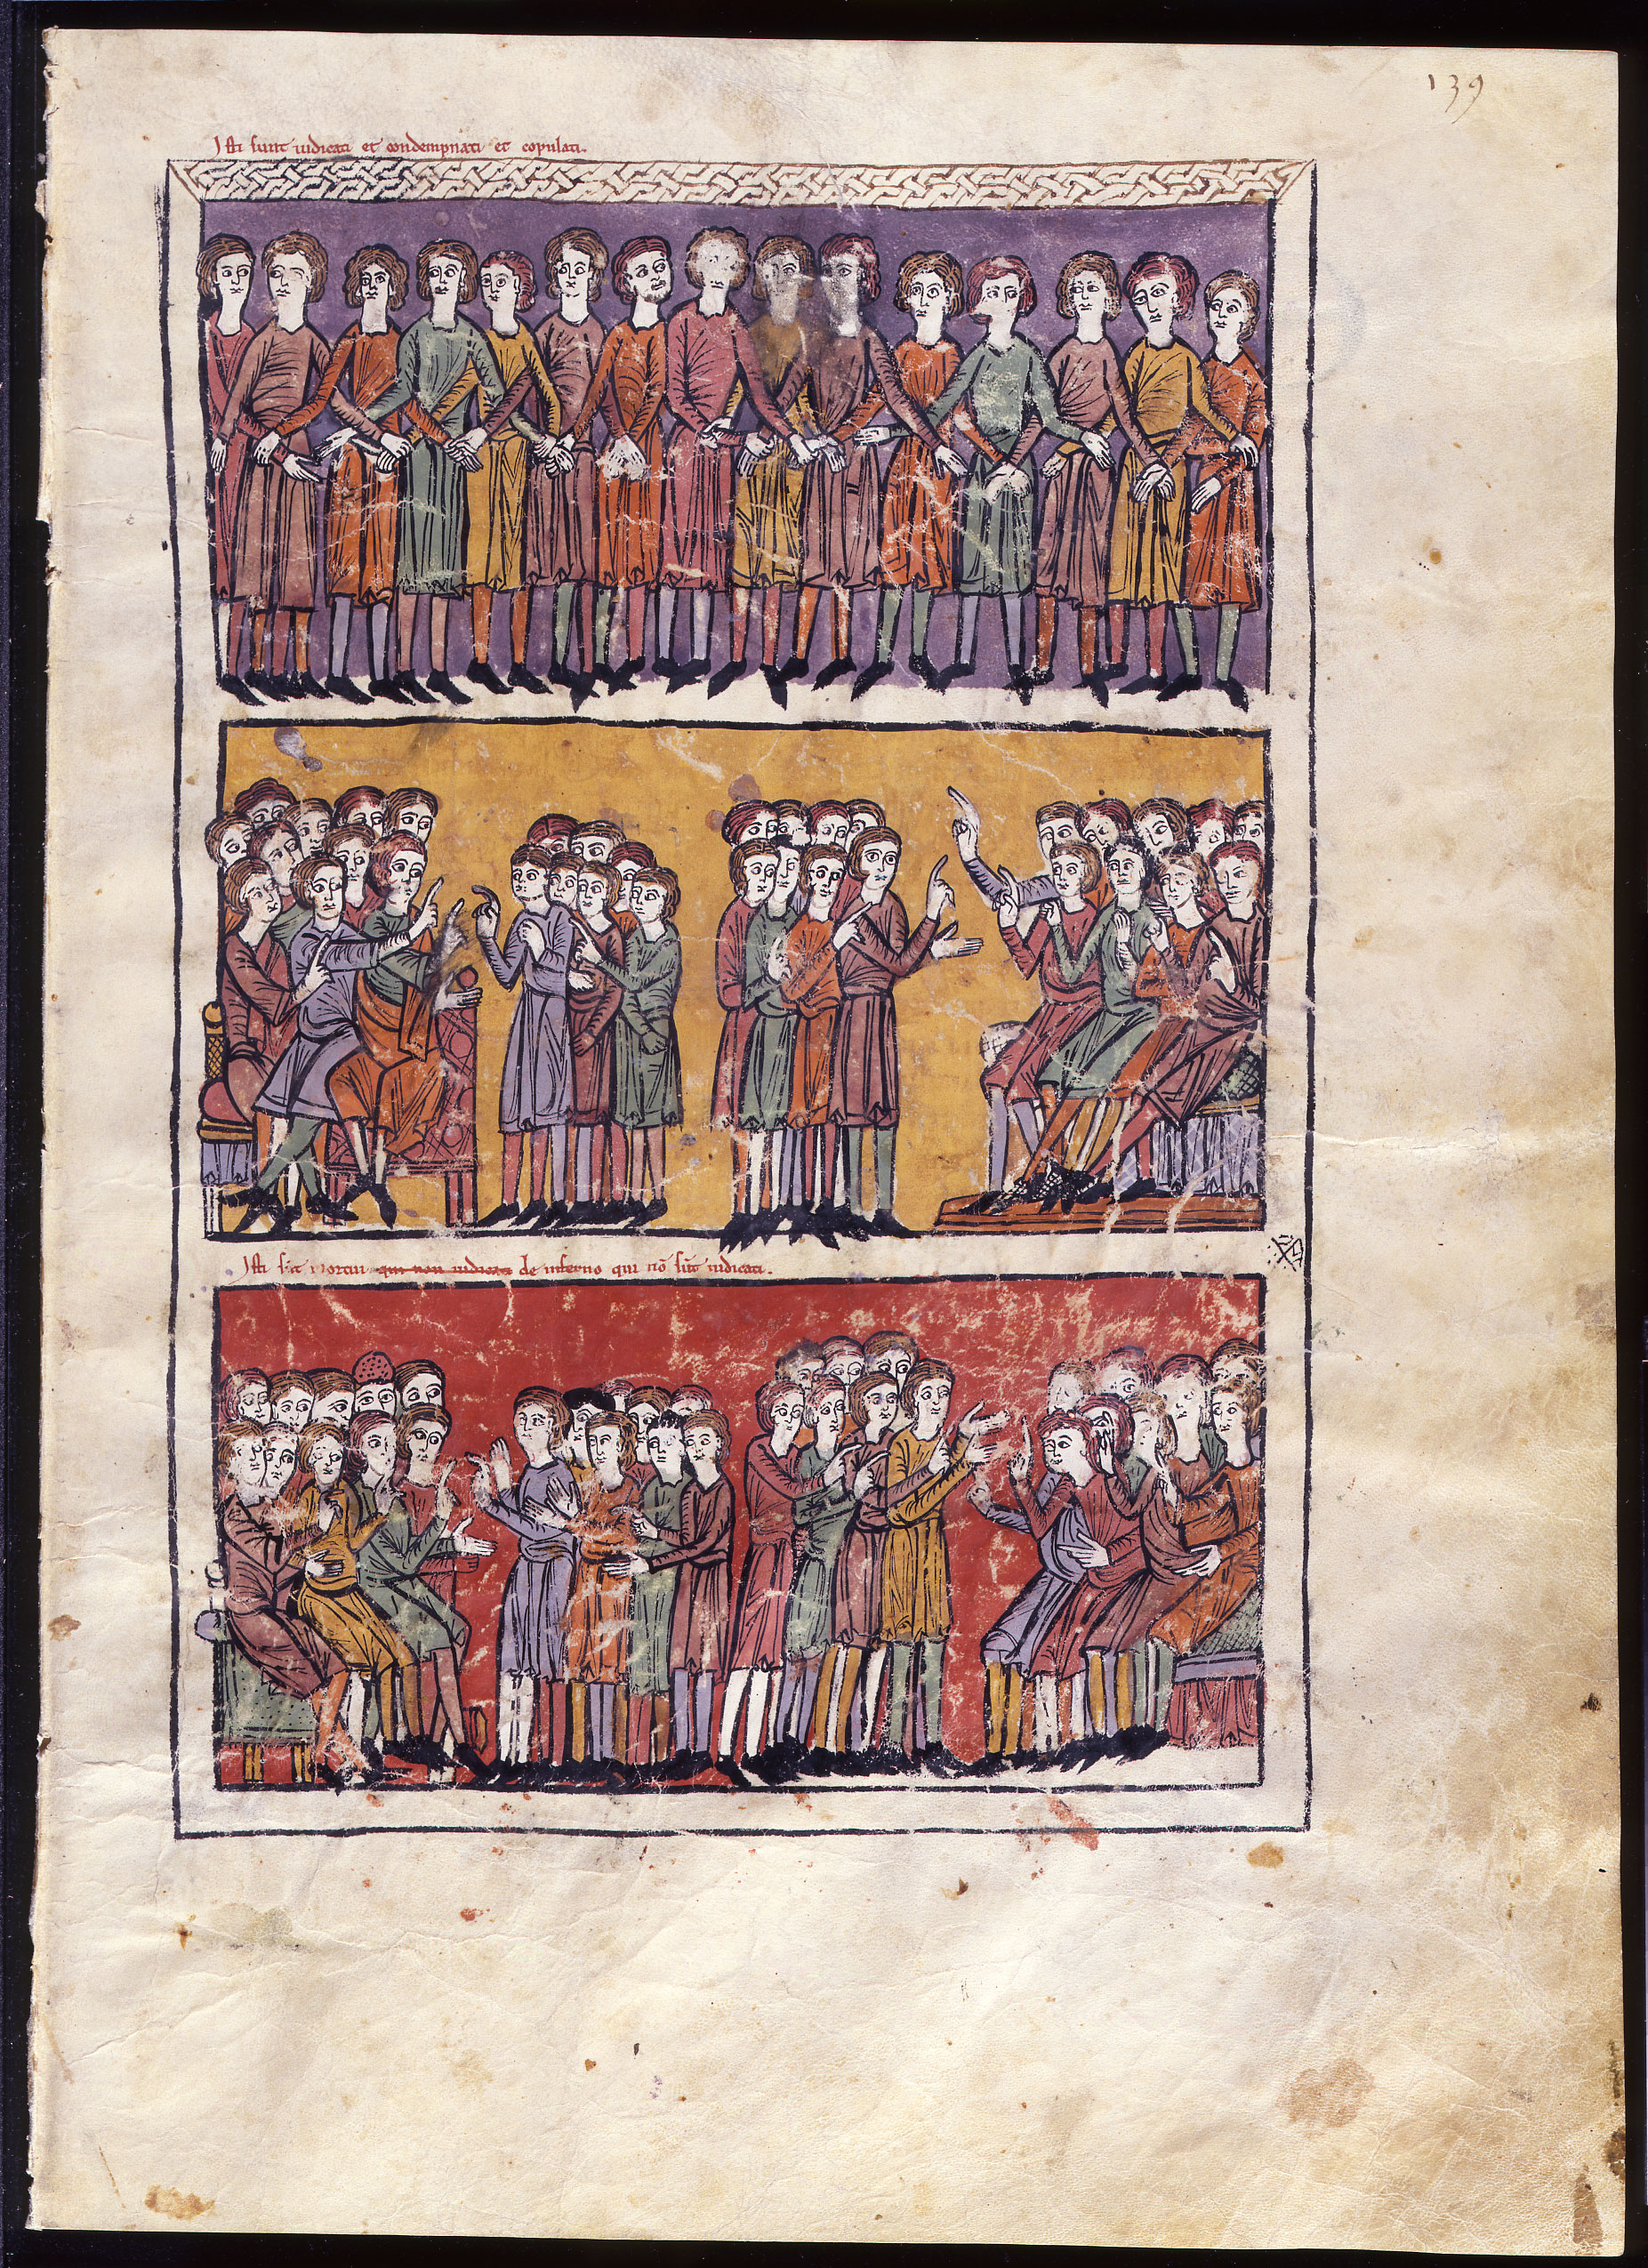 139
Isti sunt iudicati et condempnati et copulati.
Isti st̄ mortui qui non iudicati de inferno qui nō sūt iudicati.